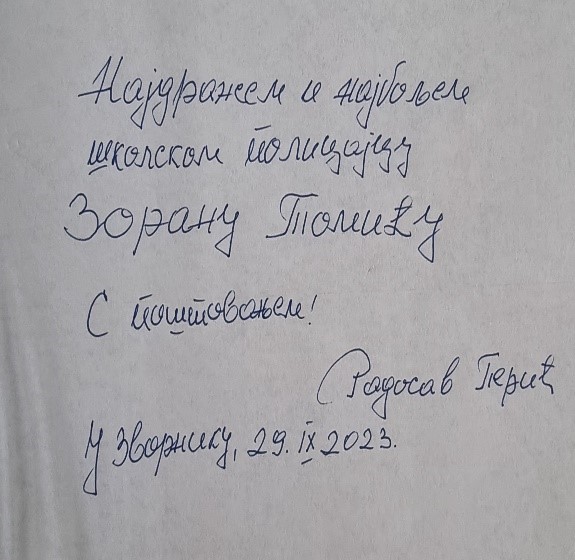 Најдражем и најбољем
школском полицајцу
Зорану Томићу
С поштовањем!
Радосав Перић
У Зворнику, 29. IX 2023.